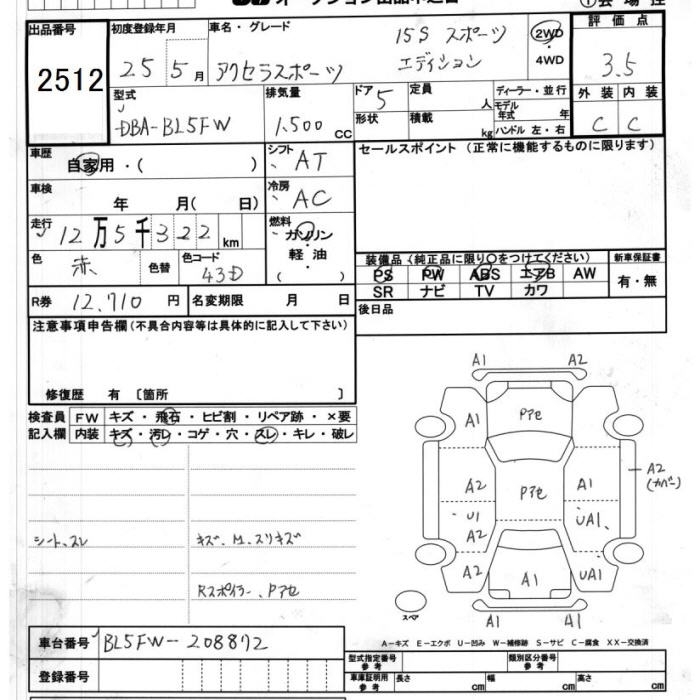 オークション出品申込書
①会場控
出品番号
2512
初度登録年月
25 5月
車名・グレード
アクセラスポーツ
15S スポーツ
エディション
2WD
4WD
評価点
3.5
外装 内装
C C
型式
DBA-BL5FW
排気量
1.500 CC
ドア 5
形状
定員 人
積載 kg
ディーラー・並行
モデル年式 年
ハンドル 左・右
車歴
自家用・( )
シフト
AT
セールスポイント(正常に機能するものに限ります)
車検
年 月( 日)
冷房
AC
走行
12万5千322km
燃料
ガソリン
軽油
( )
色
赤
色替
色コード
43D
装備品(純正品に限り〇をつけてください)
PS PW ABS エアB AW
SR ナビ TV カワ
新車保証書
有・無
R券 12,710 円
名変期限 月 日
後日品
注意事項申告欄(不具合内容等は具体的に記入して下さい)
修復歴 有〔箇所 〕
検査員
記入欄
FW キズ・飛石・ヒビ割・リペア跡・×要
内装 キズ・汚レ・コゲ・穴・スレ・キレ・破レ
シート、スレ
キズ、M、スリキズ
Rスポイラー、Pアセ
A1 A2
A1 Pアセ
A2 Pアセ A1
A2
(カバー)
U1 A2 UA1
A2 A1 UA1
A1 A1
スペア
A-キズ E-エクボ U-凹み W-補修跡 S-サビ C-腐食 XX-交換済
車台番号 BL5FW-208872
登録番号
型式指定番号
参考
類別区分番号
参考
車庫証明用
参考
長さ cm
幅 cm
高さ cm